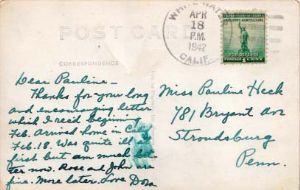 POST CARD
WHITE WATER
APR
18
P.M.
1942
CALIF.
CORRESPONDENCE
Dear Pauline -
Thanks for your long
and encouraging letter
which I rec'd beginning
Feb. Arrived home in
Feb. 18. Was quite ill
first but am much
ter now. Rose and John
fine. More later. Love Dora
Miss Pauline Heck
781 Bryant Ave
Stroudsburg
Penn.